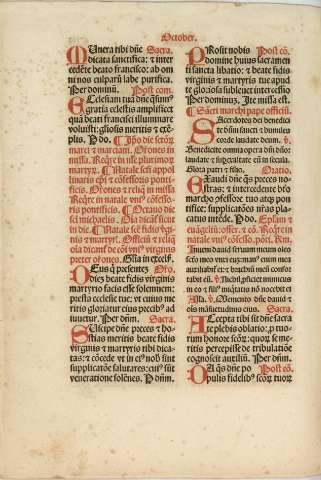 October.
Munera tibi dñe Sacra.
dicata sanctifica: & inter
cedēte beato francisco; ab om
ni nos culparū labe purifica.
Per dominū. Post com.
Ecclesiam tuā dñe q̄s
gratia celestis amplificet
quā beati francisci illuminare
voluisti: gliosis meritis & exē-
plis. P dñm.
marci & marciani. Oīones
in missa. Reqre in nse plurimoꝝ
martyꝝ. Natale scī
& relīq̄ in missa
Reqre in natale vniꝰ cōfesso-
ris pontificis. Octaua die
scī michaelis.
Natale scē fidis
nis & martyꝝ. Officiū & reliq̄
oīa dicant̄ de cōi vniꝰ virginis
preter oīones. Glia in excelſ.
Deus q̄ presentē Oīo.
diez beate fidis virginis
martyrio facis esse solennem:
presta ecclesie tue: vt cuius me
ritis gloriatur eius precibꝰ ad
iuuetur. Per dñm. Sacra.
Suscipe dñe preces & ho-
stias meritis beate fidis
virginis & martyris tibi dica-
tas: & cōcede vt in eiꝰ nob̄ sint
supplicatōe salutares: cuiꝰ sūt
veneratione solēnes. P dñm.
Prosit nobis Post cō.
domine huius sacramen
ti sancta libatio: & beate fidis
virginis & martyris tue apud
te gloriosa subleuet intercessio
Per dominum. Ite missa est.
Sācti marci pape officiū.
Sacerdotes dei benedici
te dñm sancti & humiles
corde laudate deum. v̄.
Benedicite omnia opera dñi dño:
laudate & superaltate eū in secula.
Gloria patri & filio. Oratio.
Exaudi dñe q̄s preces no
stras: & intercedente btō
marco cōfessore tuo atqꝫ pon
tifice: supplicatōes nr̄as pla-
catus intēde. P dño. Epistam &
euāgeliū: offer. & cō. Reqre in
natale vnꝰ cōfesso. pōt. Rm̄.
Inueni dauid seruum meum oleo
scō meo vnxi eum: manꝰ enim mea
auxiliabit̄ ei: & brachiū meū confor
tabit eū. v̄. Nichil ꝓficiet inimicus
in eo & filiꝰ iniquitatis nō nocebit ei
Alla. v̄. Memento dñe dauid &
oīs māsuetudinis eius. Sacra.
Accepta tibi sit dñe sacra
te plebis oblatio: ꝓ tuo-
rum honore scōꝝ: quoꝝ se me-
ritis percepisse de tribulatiōe
cognoscit auxilium. Per dñm.
Da q̄s dñe po- Post cō.
pulis fidelibꝰ scōꝝ tuoꝝ